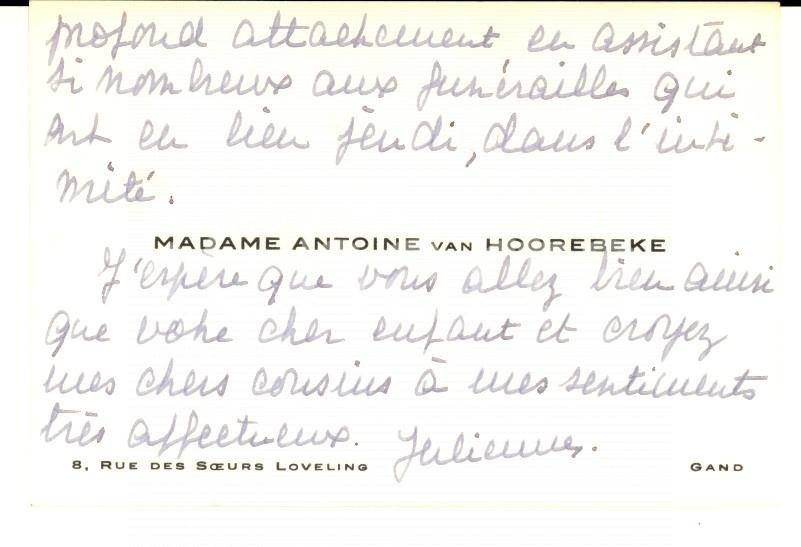 profond attachement en assistant
si nombreux aux funérailles qui
ont eu lieu jeudi, dans l'inti-
mité.
MADAME ANTOINE VAN HOOREBEKE
J'espère que vous allez bien ainsi
que votre cher enfant et croyez
mes chers cousins à mes sentiments
très affectueux. Julienne.
8, RUE DES SŒURS LOVELING GAND